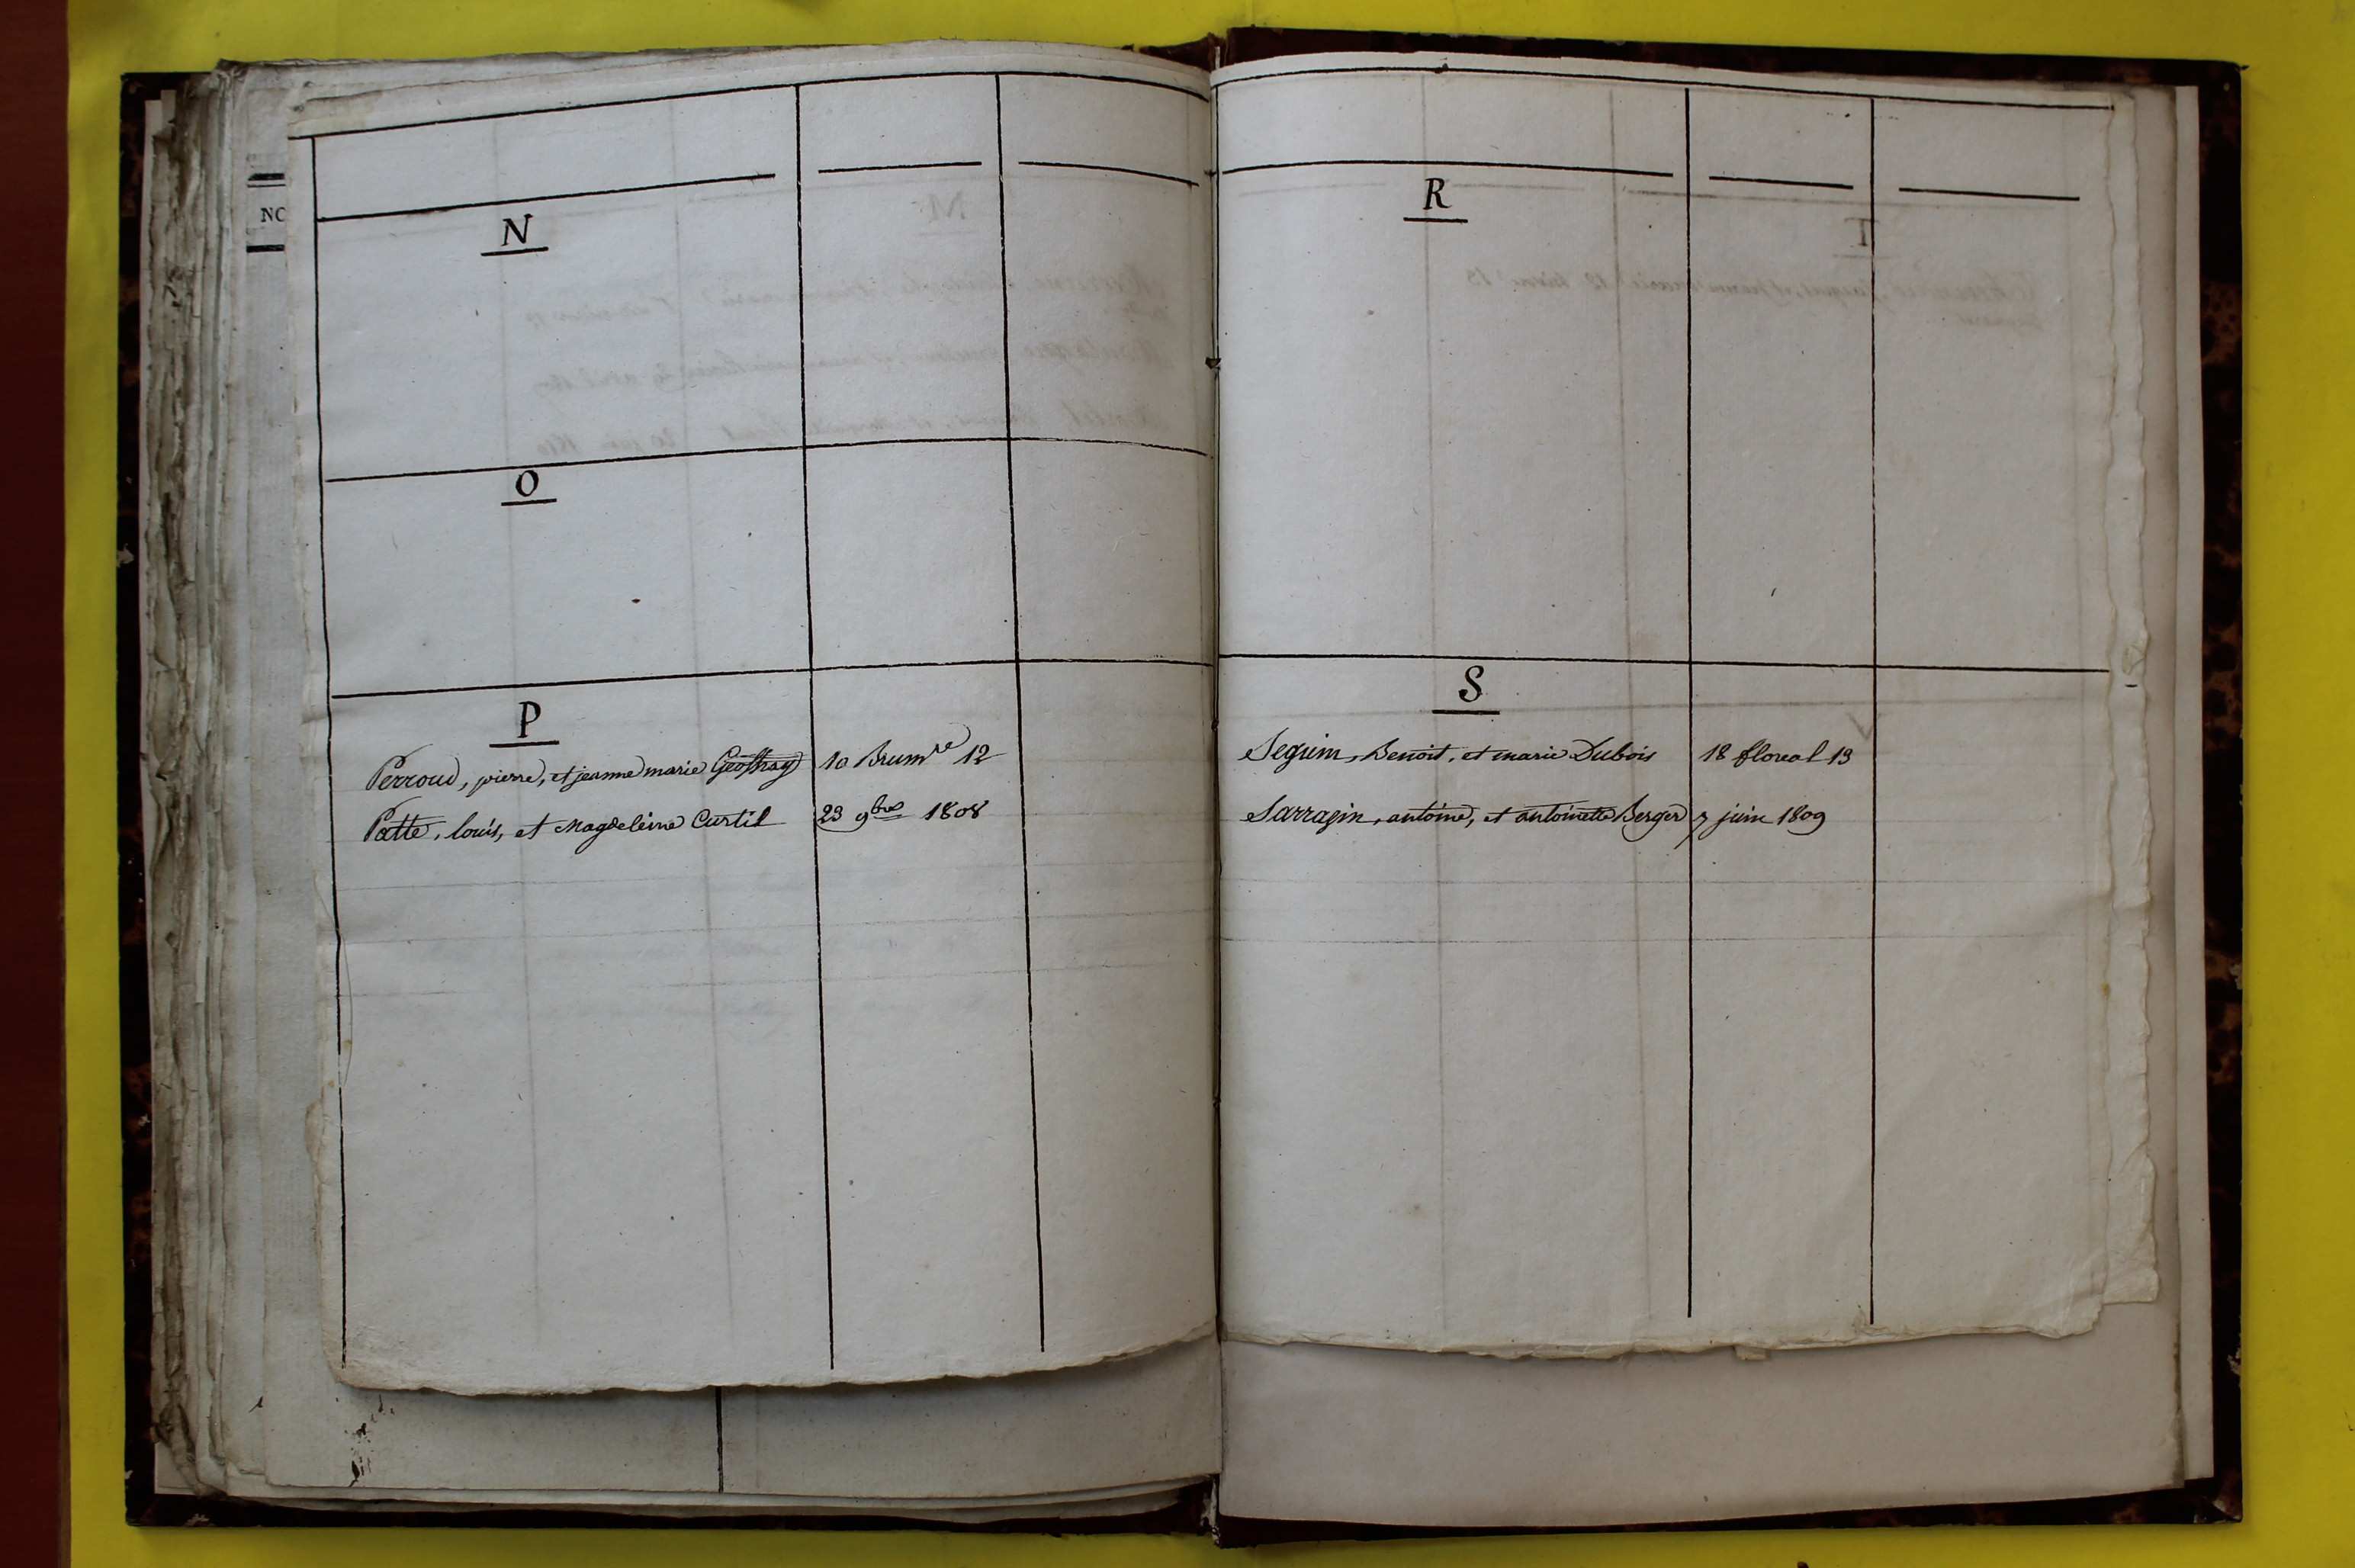 NC
N
O
P
Perroud, pierre, et jeanne marie Geoffray 10 Brum.re 12
Patte, louis, et Magdeleine Curtil 23 9bre 1808
R
S
Seguin, Benoit, et marie Dubois 18 floreal 13
Sarrazin, antoine, et antoinette Berger 7 juin 1809